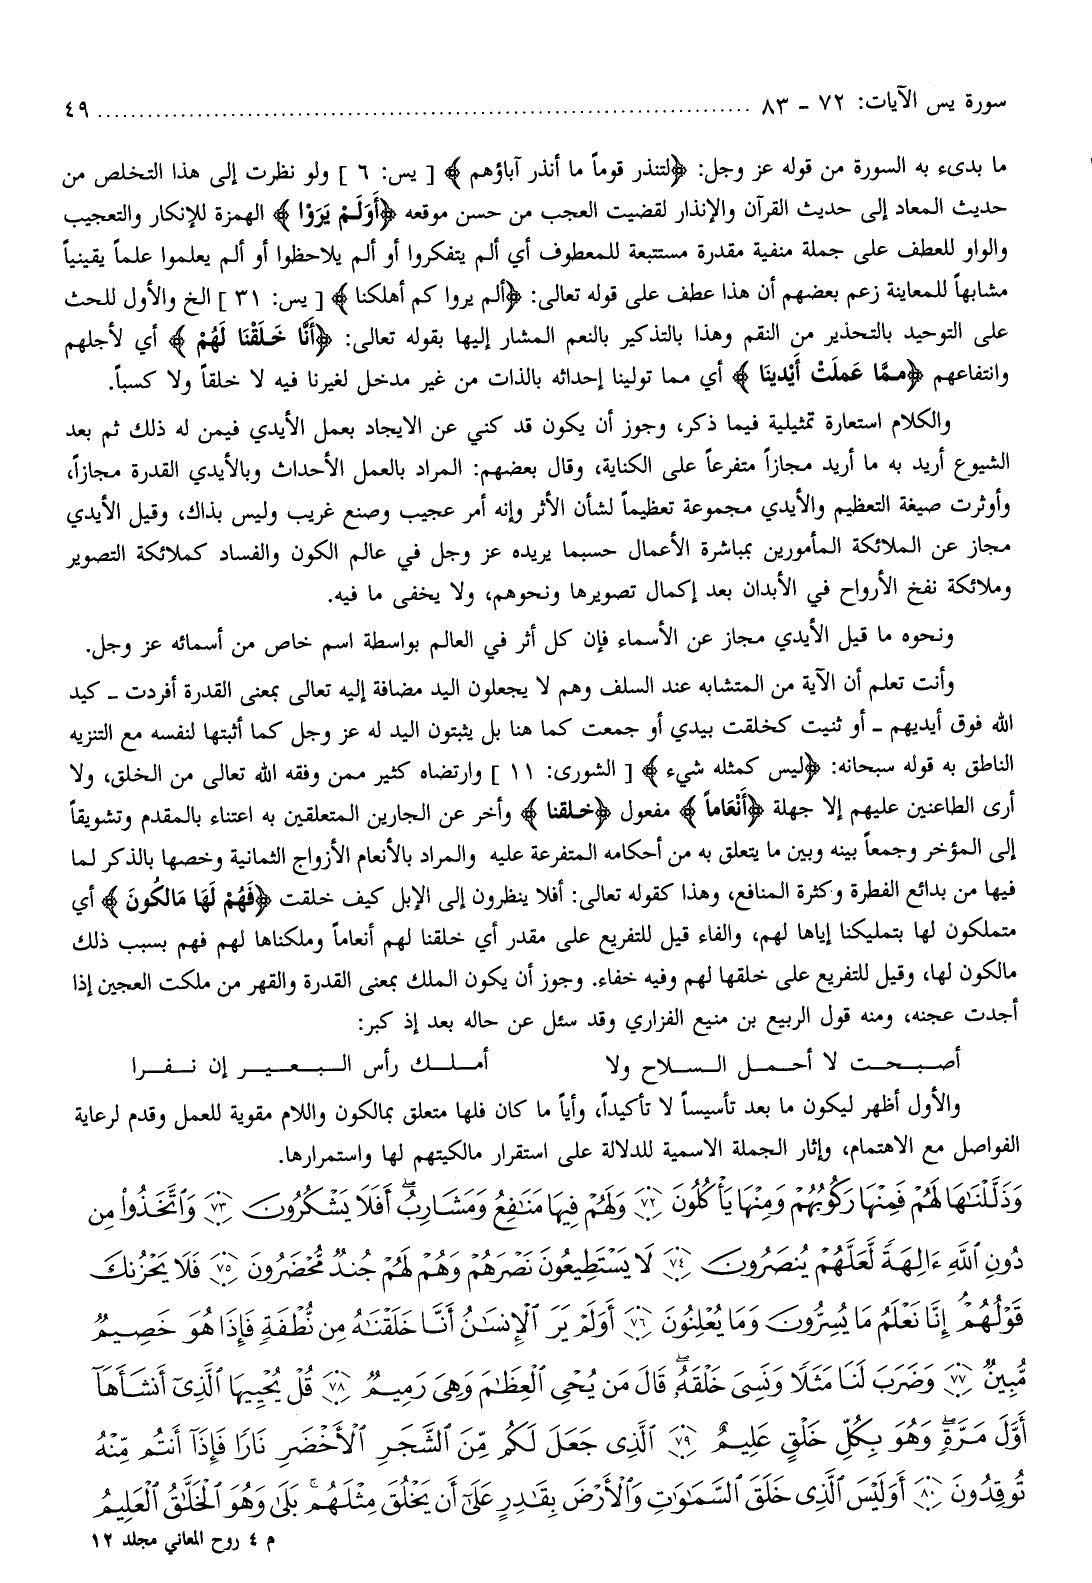 سورة يس الآيات: ٧٢ - ٨٣ ................................ ٤٩
ما بدىء به السورة من قوله عز وجل: ﴿لتنذر قوماً ما أنذر آباؤهم﴾ [ يس: ٦ ] ولو نظرت إلى هذا التخلص من
حديث المعاد إلى حديث القرآن والإنذار لقضيت العجب من حسن موقعه ﴿أَوَلَمْ يَرَوْا﴾ الهمزة للإنكار والتعجيب
والواو للعطف على جملة منفية مقدرة مستتبعة للمعطوف أي ألم يتفكروا أو ألم يلاحظوا أو ألم يعلموا علماً يقينياً
مشابهاً للمعاينة زعم بعضهم أن هذا عطف على قوله تعالى: ﴿ألم يروا كم أهلكنا﴾ [ يس: ٣١ ] الخ والأول للحث
على التوحيد بالتحذير من النقم وهذا بالتذكير بالنعم المشار إليها بقوله تعالى: ﴿أَنَّا خَلَقْنَا لَهُمْ﴾ أي لأجلهم
وانتفاعهم ﴿مـمَّا عَمَلَتْ أَيْدينَا﴾ أي مما تولينا إحداثه بالذات من غير مدخل لغيرنا فيه لا خلقاً ولا كسباً.
والكلام استعارة تمثيلية فيما ذكر، وجوز أن يكون قد كني عن الايجاد بعمل الأيدي فيمن له ذلك ثم بعد
الشيوع أريد به ما أريد مجازاً متفرعاً على الكناية، وقال بعضهم: المراد بالعمل الأحداث وبالأيدي القدرة مجازاً،
وأوثرت صيغة التعظيم والأيدي مجموعة تعظيماً لشأن الأثر وإنه أمر عجيب وصنع غريب وليس بذاك، وقيل الأيدي
مجاز عن الملائكة المأمورين بمباشرة الأعمال حسبما يريده عز وجل في عالم الكون والفساد كملائكة التصوير
وملائكة نفخ الأرواح في الأبدان بعد إكمال تصويرها ونحوهم، ولا يخفى ما فيه.
ونحوه ما قيل الأيدي مجاز عن الأسماء فإن كل أثر في العالم بواسطة اسم خاص من أسمائه عز وجل.
وأنت تعلم أن الآية من المتشابه عند السلف وهم لا يجعلون اليد مضافة إليه تعالى بمعنى القدرة أفردت ـ كيد
الله فوق أيديهم ـ أو ثنيت كخلقت بيدي أو جمعت كما هنا بل يثبتون اليد له عز وجل كما أثبتها لنفسه مع التنزيه
الناطق به قوله سبحانه: ﴿ليس كمثله شيء﴾ [ الشورى: ١١ ] وارتضاه كثير ممن وفقه الله تعالى من الخلق، ولا
أرى الطاعنين عليهم إلا جهلة ﴿أَنْعَاماً﴾ مفعول ﴿خـلقنا﴾ وأخر عن الجارين المتعلقين به اعتناء بالمقدم وتشويقاً
إلى المؤخر وجمعاً بينه وبين ما يتعلق به من أحكامه المتفرعة عليه والمراد بالأنعام الأزواج الثمانية وخصها بالذكر لما
فيها من بدائع الفطرة وكثرة المنافع، وهذا كقوله تعالى: أفلا ينظرون إلى الإبل كيف خلقت ﴿فَهُمْ لَهَا مَالكُونَ﴾ أي
متملكون لها بتمليكنا إياها لهم، والفاء قيل للتفريع على مقدر أي خلقنا لهم أنعاماً وملكناها لهم فهم بسبب ذلك
مالكون لها، وقيل للتفريع على خلقها لهم وفيه خفاء. وجوز أن يكون الملك بمعنى القدرة والقهر من ملكت العجين إذا
أجدت عجنه، ومنه قول الربيع بن منيع الفزاري وقد سئل عن حاله بعد إذ كبر:
أصبـحت لا أحـمـل الـسـلاح ولا أمـلـك رأس الـبـعـيـر إن نـفـرا
والأول أظهر ليكون ما بعد تأسيساً لا تأكيداً، وأياً ما كان فلها متعلق بمالكون واللام مقوية للعمل وقدم لرعاية
الفواصل مع الاهتمام، وإثار الجملة الاسمية للدلالة على استقرار مالكيتهم لها واستمرارها.
وَذَلَّلْنَٰهَا لَهُمْ فَمِنْهَا رَكُوبُهُمْ وَمِنْهَا يَأْكُلُونَ ﴿٧٢﴾ وَلَهُمْ فِيهَا مَنَٰفِعُ وَمَشَارِبُ ۖ أَفَلَا يَشْكُرُونَ ﴿٧٣﴾ وَٱتَّخَذُوا۟ مِن
دُونِ ٱللَّهِ ءَالِهَةً لَّعَلَّهُمْ يُنصَرُونَ ﴿٧٤﴾ لَا يَسْتَطِيعُونَ نَصْرَهُمْ وَهُمْ لَهُمْ جُندٌ مُّحْضَرُونَ ﴿٧٥﴾ فَلَا يَحْزُنكَ
قَوْلُهُمْ ۘ إِنَّا نَعْلَمُ مَا يُسِرُّونَ وَمَا يُعْلِنُونَ ﴿٧٦﴾ أَوَلَمْ يَرَ ٱلْإِنسَٰنُ أَنَّا خَلَقْنَٰهُ مِن نُّطْفَةٍ فَإِذَا هُوَ خَصِيمٌ
مُّبِينٌ ﴿٧٧﴾ وَضَرَبَ لَنَا مَثَلًا وَنَسِىَ خَلْقَهُۥ ۖ قَالَ مَن يُحْىِ ٱلْعِظَٰمَ وَهِىَ رَمِيمٌ ﴿٧٨﴾ قُلْ يُحْيِيهَا ٱلَّذِىٓ أَنشَأَهَآ
أَوَّلَ مَرَّةٍ ۖ وَهُوَ بِكُلِّ خَلْقٍ عَلِيمٌ ﴿٧٩﴾ ٱلَّذِى جَعَلَ لَكُم مِّنَ ٱلشَّجَرِ ٱلْأَخْضَرِ نَارًا فَإِذَآ أَنتُم مِّنْهُ
تُوقِدُونَ ﴿٨٠﴾ أَوَلَيْسَ ٱلَّذِى خَلَقَ ٱلسَّمَٰوَٰتِ وَٱلْأَرْضَ بِقَٰدِرٍ عَلَىٰٓ أَن يَخْلُقَ مِثْلَهُم ۚ بَلَىٰ وَهُوَ ٱلْخَلَّٰقُ ٱلْعَلِيمُ
م ٤ روح المعاني مجلد ١٢